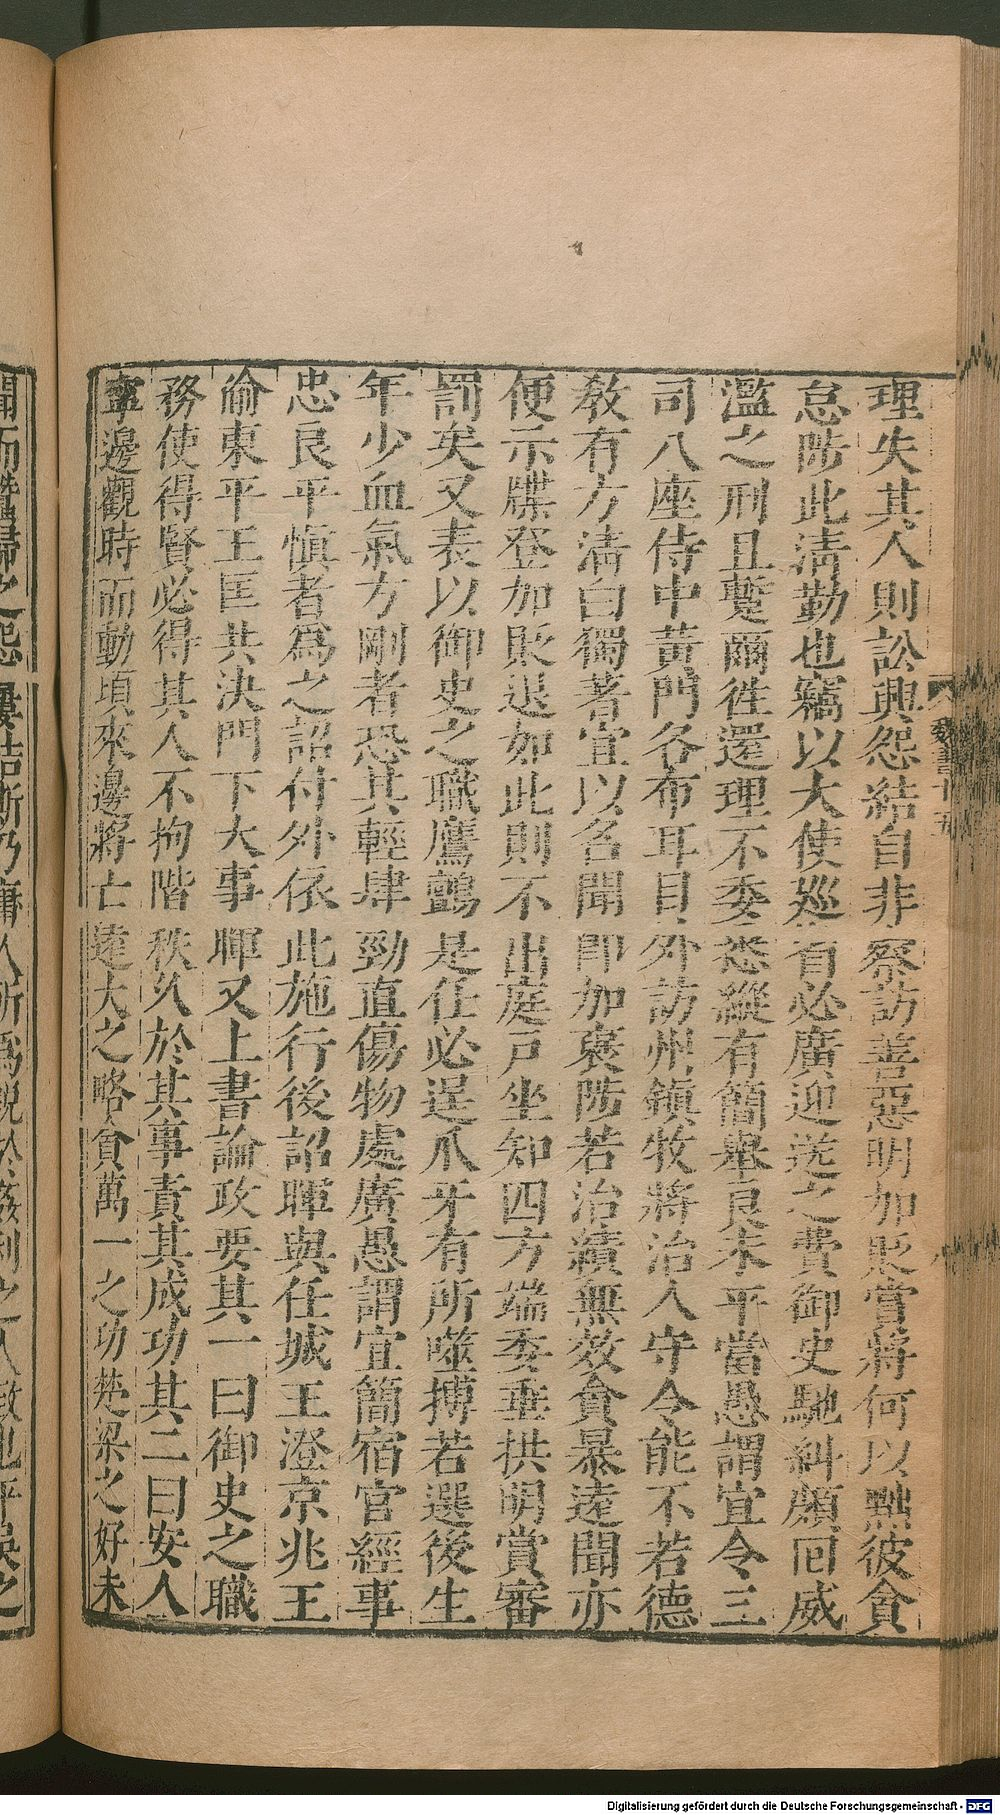 理失其人則訟興怨結自非察訪善惡明加貶賞將何以黜彼貪
怠陟此淸勤也竊以大使巡省必廣迎送之費御史馳糾頗回威
濫之刑且蹔爾徃還理不委悉縱有簡舉良未平當愚謂宜令三
司八座侍中黃門各布耳目外訪州鎭牧將治人守令能不若德
敎有方淸白獨著宜以名聞卽加褒陟若治績無效貪暴遠聞亦
便示牒登加貶退如此則不出庭戸坐知四方端委垂拱明賞審
罰矣又表以御史之職鷹鸇是任必逞爪牙有所噬搏若選後生
年少血氣方剛者恐其輕肆勁直傷物處廣愚謂宜簡宿官經事
忠良平愼者爲之詔付外依此施行後詔暉與任城王澄京兆王
愉東平王匡共決門下大事暉又上書論政要其一曰御史之職
務使得賢必得其人不拘階秩久於其事責其成功其二曰安人
寧邊觀時而動頃來邊將亡遠大之略貪萬一之功楚梁之好未
聞而蠶婦之怨屢結斯乃庸人所爲銳於姦利之所致也平吳之
魏書十五
Digitalisierung gefördert durch die Deutsche Forschungsgemeinschaft - DFG